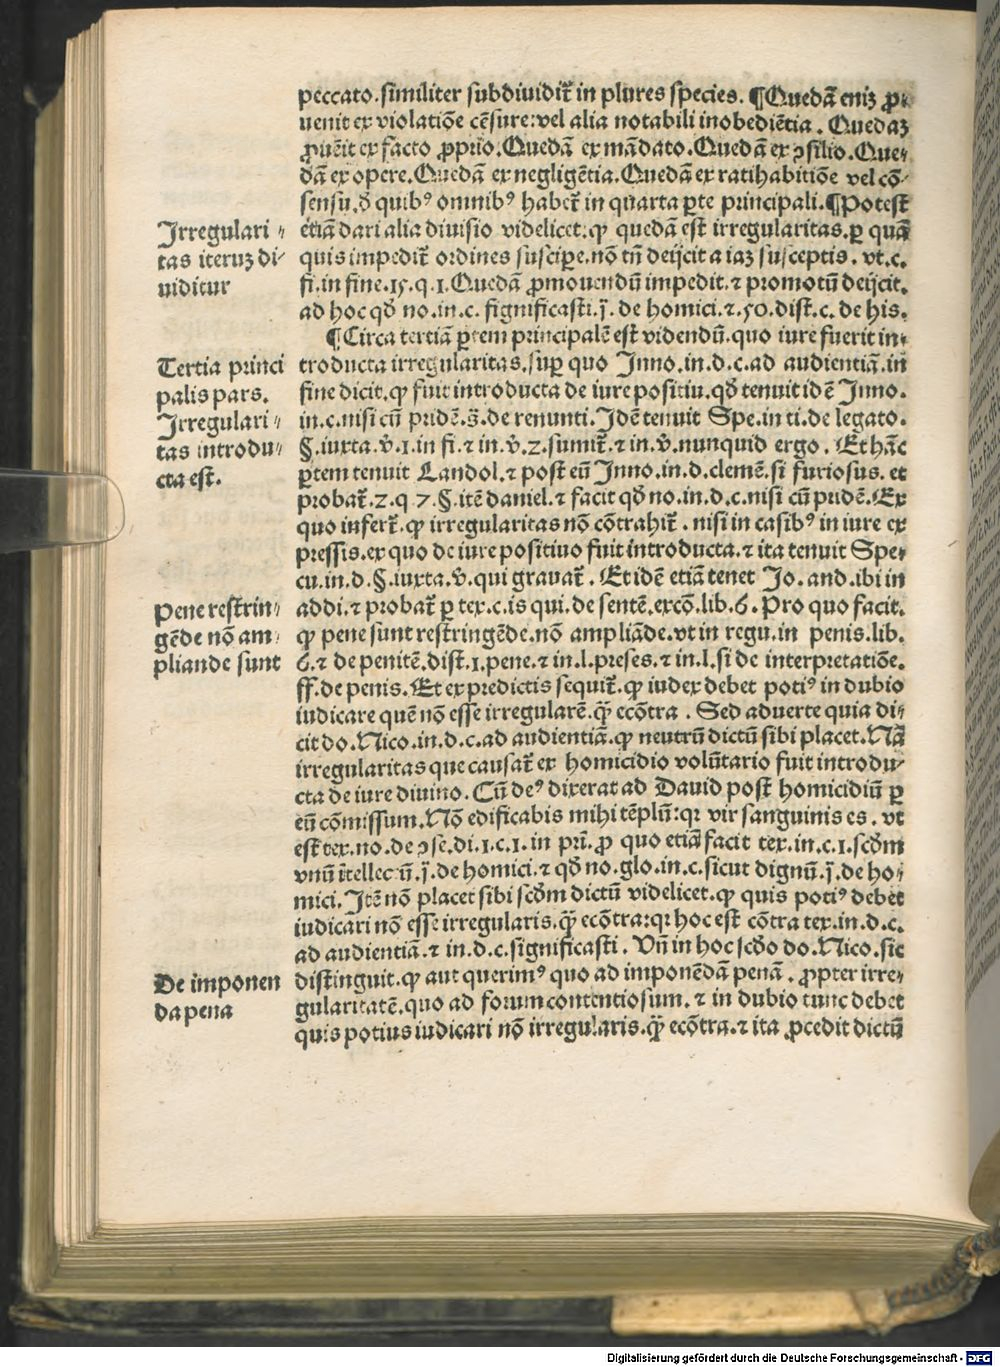 peccato.similiter subdiuidit᷑ in plures species. ¶Quedā eniꝫ ꝓ⸗
uenit ex violatiōe cēsure:vel alia notabili inobediētia. Quedaꝫ
ꝓuēit ex facto ꝓprio.Quedā ex mādato.Quedā ex ꝯsilio.Que⸗
dā ex opere.Quedā ex negligētia.Quedā ex ratihabitiōe vel cō⸗
sensu.d̄ quibꝰ omnibꝰ habet᷑ in quarta ꝑte principali.¶Potest
etiā dari alia diuisio videlicet.ꝙ quedā est irregularitas.ꝑ quā
quis impedit᷑ ordines suscipe.nō tn̄ deijcit a iaꝫ susceptis. vt.c.
fi.in fine.15.q.1.Quedā ꝓmouendū impedit.⁊ promotū deijcit.
ad hoc qd̄ no.in.c. significasti.j̄. de homici.⁊.50.dist.c. de his.
Irregulari⸗
tas iteruꝫ di⸗
uiditur
¶Circa tertiā ꝑtem principalē est videndū.quo iure fuerit in⸗
troducta irregularitas.suꝑ quo Inno.in.d.c.ad audientiā.in
fine dicit.ꝙ fuit introducta de iure positiu.qd̄ tenuit idē Inno.
in.c.nisi cū pridē.s̄.de renunti.Idē tenuit Spe.in ti.de legato.
§.iuxta.v̄.1.in fi.⁊ in.v̄.2.sumit᷑.⁊ in.v̄.nunquid ergo. Et hāc
ꝑtem tenuit Landol.⁊ post eū Inno.in.d.clemē.si furiosus. et
probat᷑.2.q 7.§.itē daniel.⁊ facit qd̄ no.in.d.c.nisi cū pridē.Ex
quo infert᷑.ꝙ irregularitas nō cōtrahit᷑. nisi in casibꝰ in iure ex
pressis.ex quo de iure positiuo fuit introducta.⁊ ita tenuit Spe⸗
cu.in.d.§.iuxta.v̄.qui grauat᷑. Et idē etiā tenet Jo.and.ibi in
addi.⁊ probat᷑ ꝑ tex.c.is qui.de sentē.excō.lib.6. Pro quo facit.
ꝙ pene sunt restringēde.nō ampliāde.vt in regu.in penis.lib.
6.⁊ de penitē.dist.1.pene.⁊ in.l.preses.⁊ in.l.si de interpretatiōe.
ff.de penis. Et ex predictis sequit᷑.ꝙ iudex debet potiꝰ in dubio
iudicare quē nō esse irregularē.q̄ȝ ecōtra. Sed aduerte quia di⸗
cit do.Nico.in.d.c.ad audientiā.ꝙ neutrū dictū sibi placet.Nā
irregularitas que causat᷑ ex homicidio volūtario fuit introdu⸗
cta de iure diuino. Cū deꝰ dixerat ad Dauid post homicidiū ꝑ
eū cōmissum.Nō edificabis mihi tēplū:qꝛ vir sanguinis es. vt
est tex.no.de ꝯse.di.1.c.1.in pri. ꝓ quo etiā facit tex.in.c.1.scd̄m
vnū ītellectū.j̄.de homici.⁊ qd̄ no.glo.in.c.sicut dignū.j̄.de ho⸗
mici. Itē nō placet sibi scd̄m dictū videlicet.ꝙ quis potiꝰ debet
iudicari nō esse irregularis.q̄ȝ ecōtra:qꝛ hoc est cōtra tex.in.d.c.
ad audientiā.⁊ in.d.c.significasti. Vn̄ in hoc scd̄o do.Nico.sic
distinguit.ꝙ aut querimꝰ quo ad imponēdā penā. ꝓpter irre⸗
gularitatē.quo ad forum contentiosum.⁊ in dubio tunc debet
quis potius iudicari nō irregularis.q̄ȝ ecōtra.⁊ ita ꝓcedit dictū
Tertia princi
palis pars.
Irregulari⸗
tas introdu⸗
cta est.
Pene restrin⸗
gēde nō am⸗
pliande sunt
De imponen
da pena
Digitalisierung gefördert durch die Deutsche Forschungsgemeinschaft - DFG